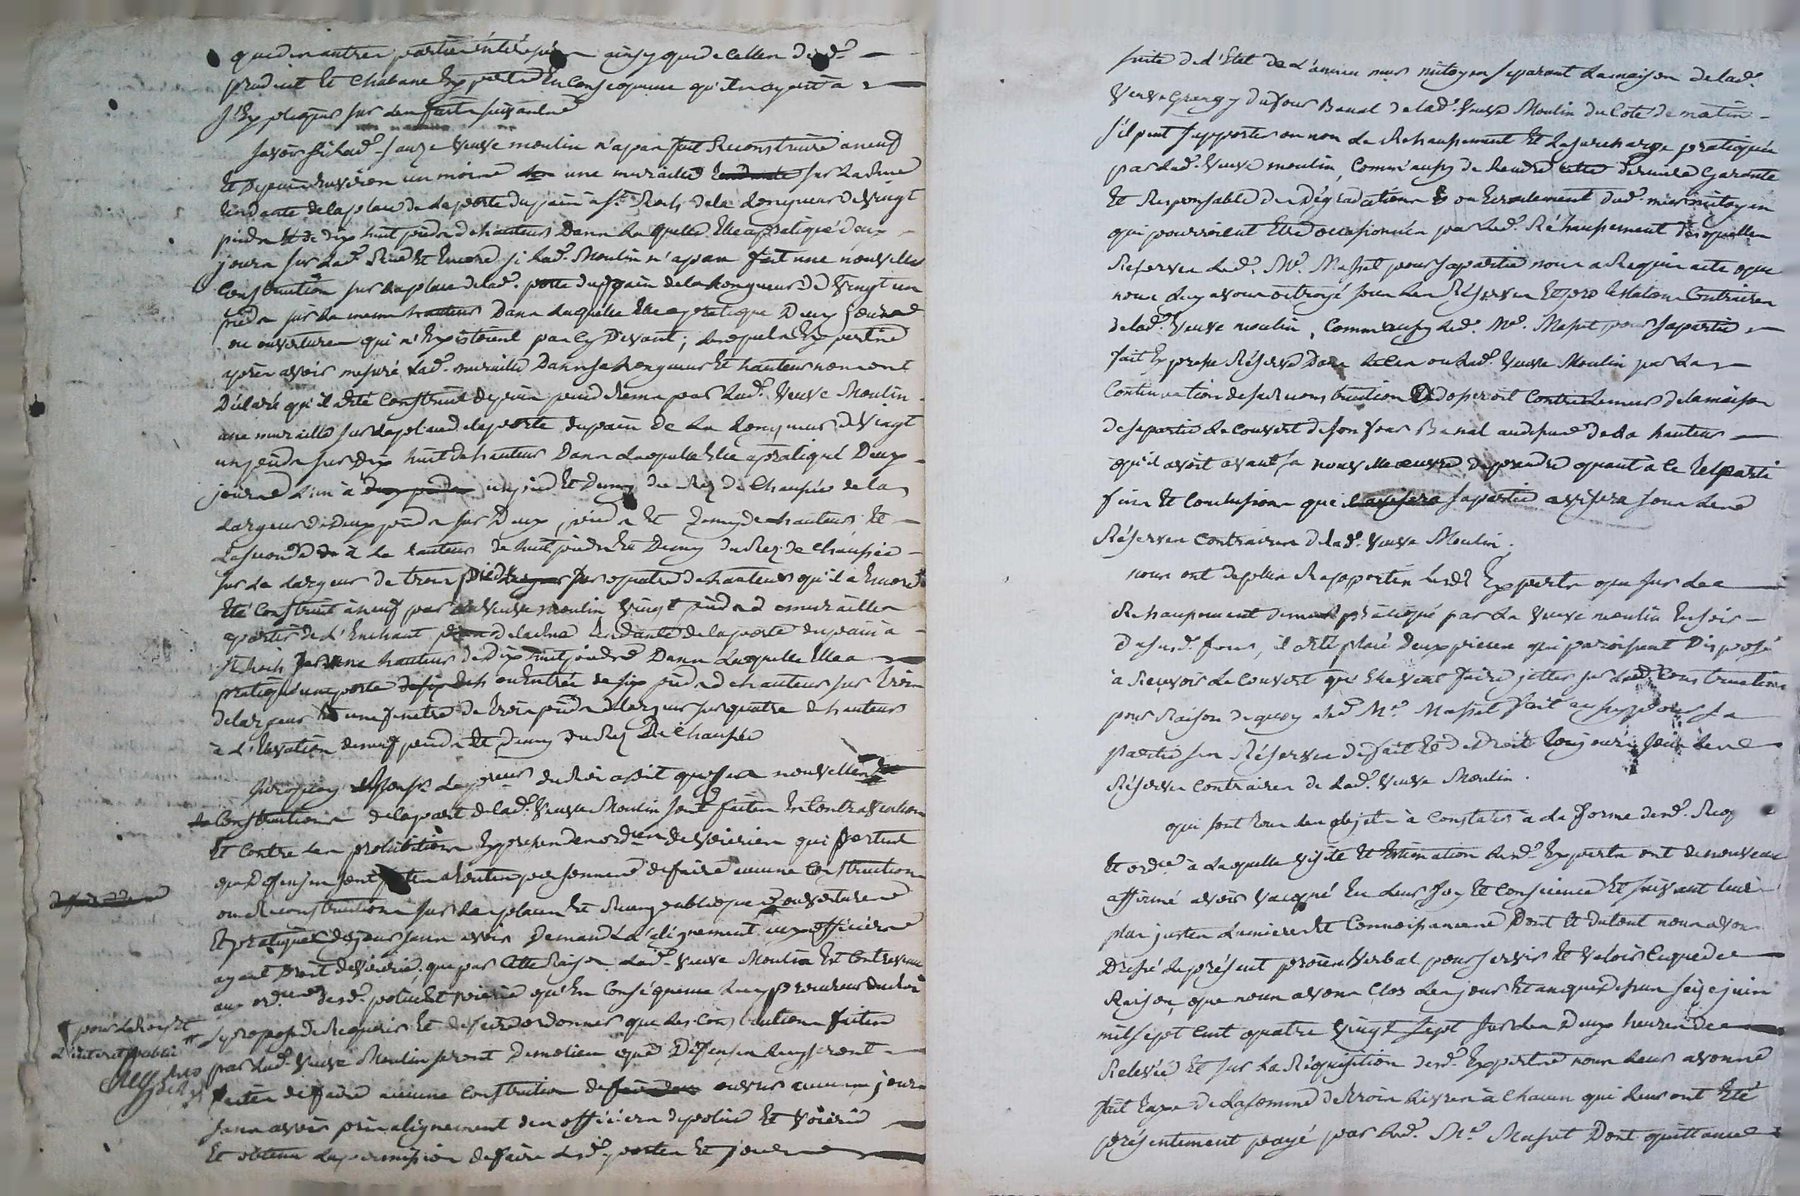 que des autres parties intéressées ainsy que de celles desd.
prudent Et Chabane Experts En Consequence qu'ils ayent à
s'Expliquer sur les faits suivants
savoir si Lad. Veuve moulin n'a pas fait Reconstruire à neuf
Et Depuis Environ un moins une muraille sur La Rue
tendante de la place de La porte du pain à St. Roch de la Longueur de vingt
pieds Et de dix huit pieds de hauteur Dans La quelle Elle a pratiqué deux
jours sur Lad. Rue Et Encore si Lad. Moulin n'a pas fait une nouvelle
Construction sur La place de lad. porte du pain de la Longueur de Vingt un
pieds sur La meme hauteur Dans Laquelle Elle a pratiqué Deux jours
ou ouvertures qui n'Existoient pas Cy Devant ; Lesquels Experts
après avoir mesuré Lad. muraille Dans sa Longueur Et hauteur nous ont
Déclaré qu'il a été Construit depuis peu de tems par Lad. Veuve Moulin
une muraille sur La place de la porte du pain de La Longueur de Vingt
un pieds sur Dix huit de hauteur Dans Laquelle Elle a pratiqué Deux
jours L'un à un pied Et Demy du Rez de Chaussée de la
Largeur de Deux pieds sur Deux pieds Et Demy de hauteur Et
La seconde à La hauteur de huit pieds Et Demy du Rez de Chaussée
sur La Largeur de trois pieds sur quatre de hauteur qu'il a Encore
Eté Construit à neuf par La Veuve moulin Vingt pieds de muraille
à partir de L'Enchant de la Rue tendante de la porte du pain à
St. Roch sur une hauteur de Dix huit pieds Dans Laquelle Elle a
pratiqué une porte ou Entrée de six pieds de hauteur sur trois
de largeur Et une fenetre de trois pieds de largeur sur quatre de hauteur
à L'Elevation de neuf pieds Et Demy du Rez De Chaussée
Surquoy Le procureur du Roi a dit que les nouvelles
Constructions de la part de lad. Veuve Moulin sont faites En Contravention
Et Contre Les prohibitions Expresses des ord. de Voieries qui portent
que Defenses sont faites à toutes personnes de faire aucune Construction
ou Reconstruction sur Les places Et Rues publiques ouvertures
Et pratiquer des jours sans avoir Demandé L'alignement aux officiers
ayant Droit de Voierie, que par Cette Raison Lad. Veuve Moulin Est Contrevenue
aux ord. de police Et voierie qu'En Conséquence Le procureur du Roi
pour Le Roi Et
L'interet public
se propose de Requerir Et de faire ordonner que Les Constructions faites
par Lad. Veuve Moulin seront Demolies que Défenses Luy seront
faites de faire aucune Construction ouvrir aucuns jours
sans avoir pris alignement des officiers de police Et Voierie
Et obtenu La permission de faire Lesd. portes Et jours
suite de L'Etat de L'ancien mur mitoyen separant La maison de Lad.
Veuve Grangy du four Banal de Lad. Veuve Moulin du Coté de matin
s'il peut supporter ou non Le Rehaussement Et La surcharge pratiquée
par Lad. Veuve moulin, Comm'aussy de Rendre cette derniere Garante
Et Responsable des Dégradations ou Ecroulement dud. mur mitoyen
qui pourroient Etre occasionnés par Led. Réhaussement Desquelles
Reserves Led. Me. Masset pour sa partie nous a Requis acte que
nous Luy avons octroyé sous Les Réserves Et protestations Contraires
de lad. Veuve moulin, Comm'aussy Led. Me. Masset pour sa partie
fait Expresse Réserve Dans Le Cas ou Lad. Veuve Moulin par La
Continuation de sa Construction adosseroit Contre Le mur de la maison
de sa partie Le Couvert de son four Banal audessus de la hauteur
qu'il avoit avant sa nouvelle oeuvre de prendre quant à ce tel parti
fins Et Conclusions que sa partie avisera sous Lesd.
Réserves Contraires de lad. Veuve Moulin.
nous ont de plus Rapporté Lesd. Experts que sur Les
Rehaussement pratiqué par La Veuve moulin En soir
Desusd. four, il a été placé Deux pierres qui paroissent Disposés
à Recevoir Le Couvert qu'Elle veut faire jetter sur Lad. Construction
pour Raison de quoy Led. Me. Masset fait aussy pour sa
partie ses Réserves de fait Et de Droit toujours sous Les
Réserves Contraires de Lad. Veuve Moulin.
qui sont tous Les objets à Constater à La forme desd. Req.
Et ord. à Laquelle visite Et Estimation Lesd. Experts ont de nouveau
affirmé avoir vacqué En Leur foy Et Conscience Et suivant Leurs
plus justes Lumieres Et Connoissances Dont Et Du tout nous avons
Dressé Le présent procès Verbal pour servir Et valoir Ce que de
Raison, que nous avons Clos Les jour Et an que dessus seize juin
mil sept Cent quatre vingt sept sur Les Deux heures de
Relevée Et sur La Réquisition desd. Experts nous Leur avons
fait taxe de La somme de trois Livres à Chacun qui Leur ont Eté
présentement payé par Led. Me. Masset Dont quittance